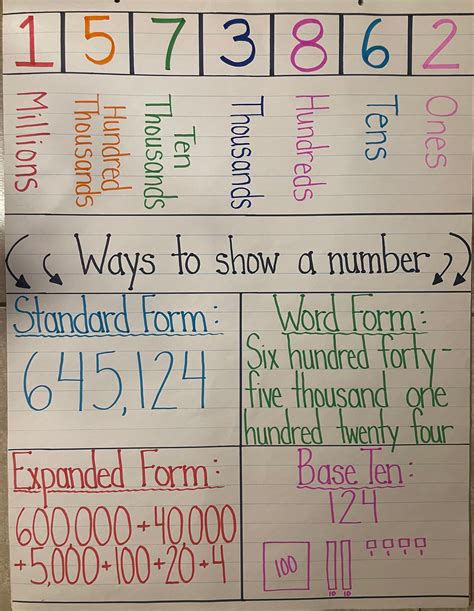 1 5 7 3 8 6 2
Millions
Hundred
Thousands
Ten
Thousands
Thousands
Hundreds
Tens
Ones
Ways to show a number
Standard Form:
645,124
Word Form:
Six hundred forty-
five thousand one
hundred twenty four
Expanded Form:
600,000+40,000
+5,000+100+20+4
Base Ten:
124
100
10 10
1 1 1 1